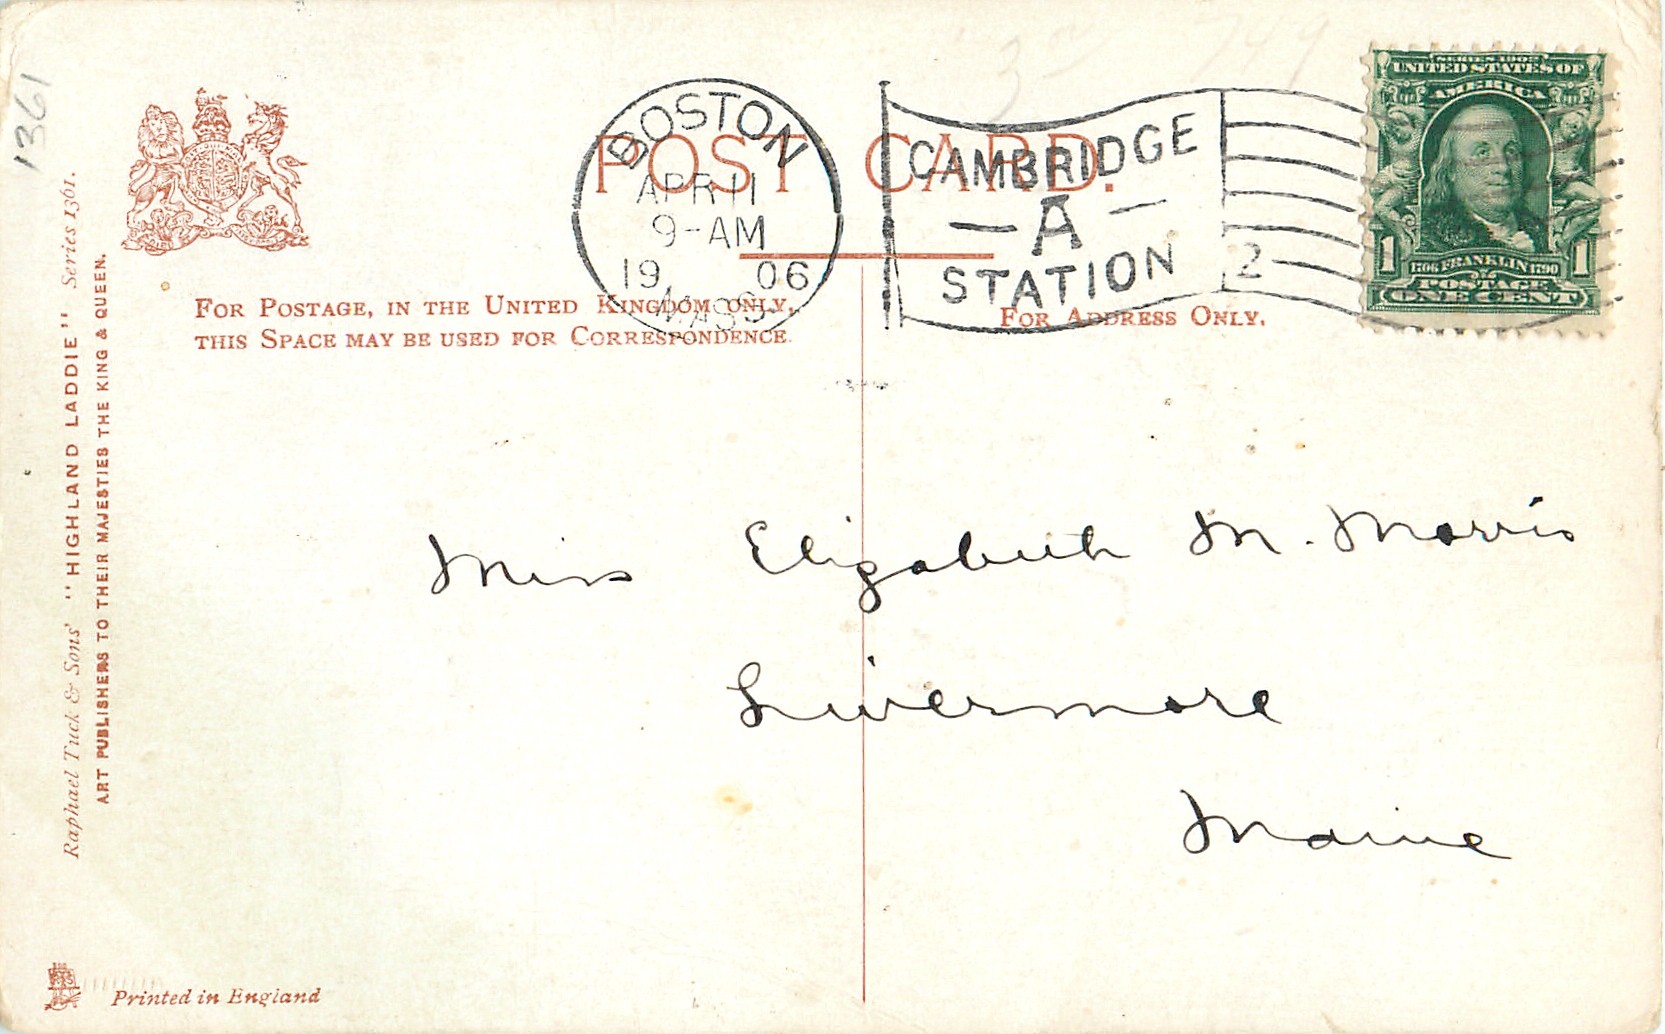 1361
Raphael Tuck & Sons' "HIGHLAND LADDIE" Series 1361.
ART PUBLISHERS TO THEIR MAJESTIES THE KING & QUEEN.
POST CARD.
FOR POSTAGE, IN THE UNITED KINGDOM ONLY,
THIS SPACE MAY BE USED FOR CORRESPONDENCE.
FOR ADDRESS ONLY.
BOSTON
APR 11
9-AM
19 06
MASS
CAMBRIDGE
- A -
STATION
2
SERIES 1902
UNITED STATES OF
AMERICA
1706 FRANKLIN 1790
1 POSTAGE 1
ONE CENT
Miss Elizabeth M. Morris
Livermore
Maine
Printed in England